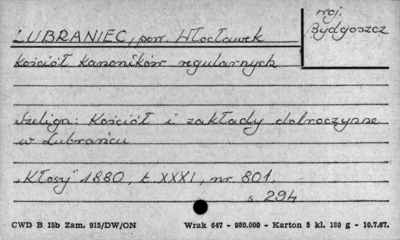 woj.
Bydgoszcz
LUBRANIEC, pow. Włocławek
Kościół kanoników regularnych
Szeliga: Kościół i zakłady dobroczynne
w Lubrańcu
„Kłosy" 1880, t. XXXI, nr. 801
s. 294
CWD B. 15b Zam. 915/DW/ON Wrak 647 - 980.000 - Karton 5 kl. 180 g - 10.7.67.